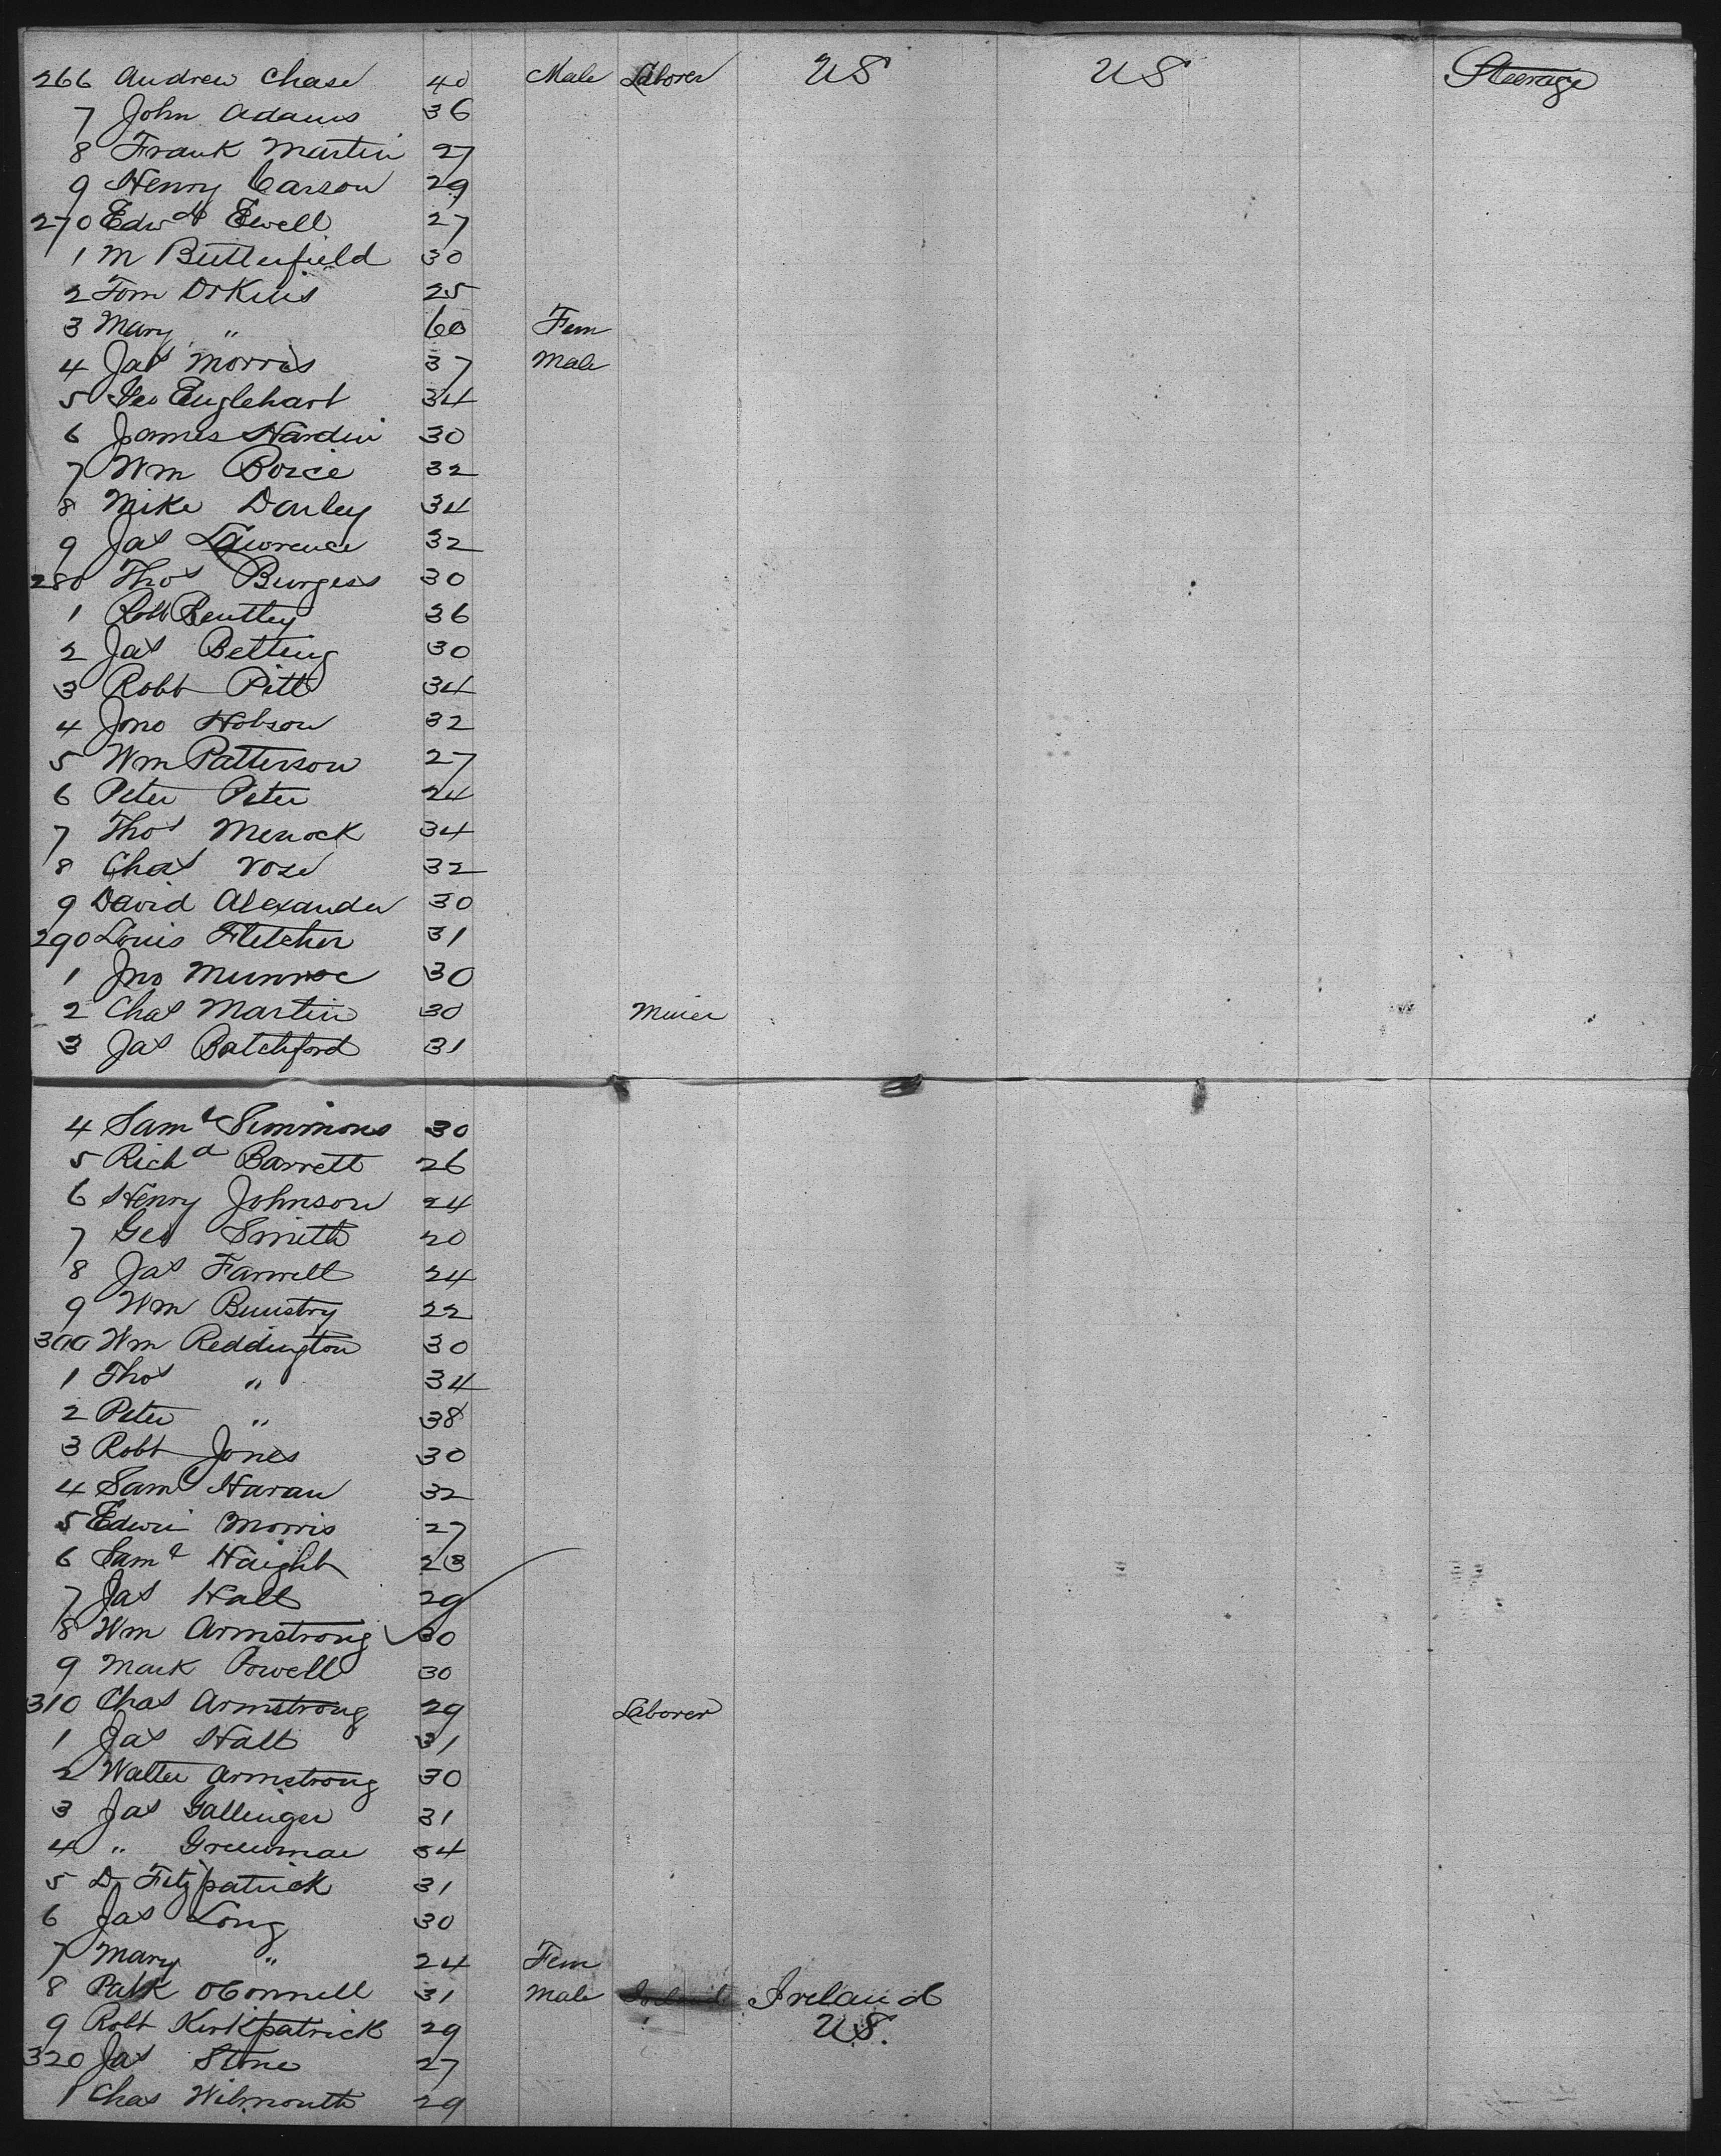 266 Andrew Chase 40 Male Laborer US US Steerage
7 John Adams 36
8 Frank Martin 27
9 Henry Carson 29
270 Edwd Ewell 27
1 M Butterfield 30
2 Tom 25
3 Mary " 60 Fem
4 Jas Morris 37 Male
5 Geo Englehart 34
6 James Hardin 30
7 Wm Boice 32
8 Mike Donley 34
9 Jas Lawrence 32
280 Thos Burgess 30
1 Robt Bentley 36
2 Jas Betting 30
3 Robt Pitt 34
4 Jno Hobson 32
5 Wm Patterson 27
6 Peter Peter 24
7 Thos 34
8 Chas Vose 32
9 David Alexander 30
290 Louis Fletcher 31
1 Jno Munroe 30
2 Chas Martin 30 Miner
3 Jas Batchford 31
4 Saml Simmons 30
5 Richd Barrett 26
6 Henry Johnson 24
7 Geo Smith 20
8 Jas Farwell 24
9 Wm 22
300 Wm Reddington 30
1 Thos " 34
2 Peter " 38
3 Robt Jones 30
4 Saml Haran 32
5 Edwin Morris 27
6 Saml Haight 23
7 Jas Hall 29
8 Wm Armstrong 30
9 Mark Powell 30
310 Chas Armstrong 29 Laborer
1 Jas Hall 31
2 Walter Armstrong 30
3 Jas Gallinger 31
4 " 34
5 D Fitzpatrick 31
6 Jas Long 30
7 Mary " 24 Fem
8 Patk OConnell 31 Male Ireland
9 Robt Kirkpatrick 29 US.
320 Jas Stone 27
1 Chas Wilmouth 29